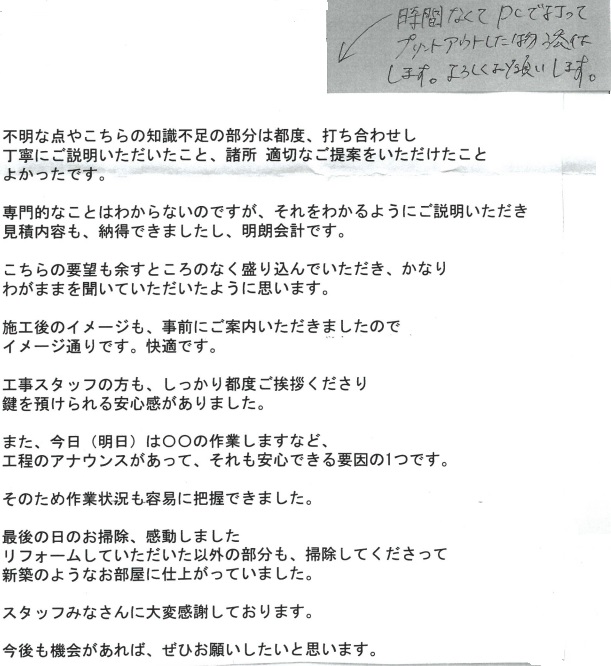 時間なくてPCで打って
プリントアウトした物添付
します。よろしくお願いします。
不明な点やこちらの知識不足の部分は都度、打ち合わせし
丁寧にご説明いただいたこと、諸所 適切なご提案をいただけたこと
よかったです。
専門的なことはわからないのですが、それをわかるようにご説明いただき
見積内容も、納得できましたし、明朗会計です。
こちらの要望も余すところのなく盛り込んでいただき、かなり
わがままを聞いていただいたように思います。
施工後のイメージも、事前にご案内いただきましたので
イメージ通りです。快適です。
工事スタッフの方も、しっかり都度ご挨拶くださり
鍵を預けられる安心感がありました。
また、今日（明日）は〇〇の作業しますなど、
工程のアナウンスがあって、それも安心できる要因の1つです。
そのため作業状況も容易に把握できました。
最後の日のお掃除、感動しました
リフォームしていただいた以外の部分も、掃除してくださって
新築のようなお部屋に仕上がっていました。
スタッフみなさんに大変感謝しております。
今後も機会があれば、ぜひお願いしたいと思います。